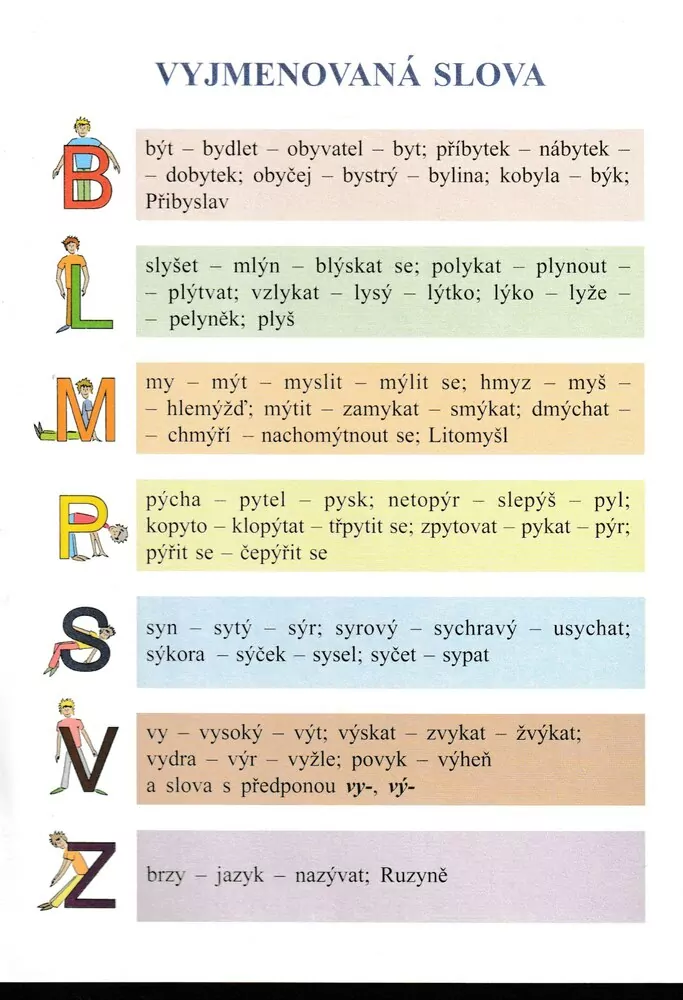 VYJMENOVANÁ SLOVA
B
být – bydlet – obyvatel – byt; příbytek – nábytek –
– dobytek; obyčej – bystrý – bylina; kobyla – býk;
Přibyslav
L
slyšet – mlýn – blýskat se; polykat – plynout –
– plýtvat; vzlykat – lysý – lýtko; lýko – lyže –
– pelyněk; plyš
M
my – mýt – myslit – mýlit se; hmyz – myš –
– hlemýžď; mýtit – zamykat – smýkat; dmýchat –
– chmýří – nachomýtnout se; Litomyšl
P
pýcha – pytel – pysk; netopýr – slepýš – pyl;
kopyto – klopýtat – třpytit se; zpytovat – pykat – pýr;
pýřit se – čepýřit se
S
syn – sytý – sýr; syrový – sychravý – usychat;
sýkora – sýček – sysel; syčet – sypat
V
vy – vysoký – výt; výskat – zvykat – žvýkat;
vydra – výr – vyžle; povyk – výheň
a slova s předponou vy-, vý-
Z
brzy – jazyk – nazývat; Ruzyně